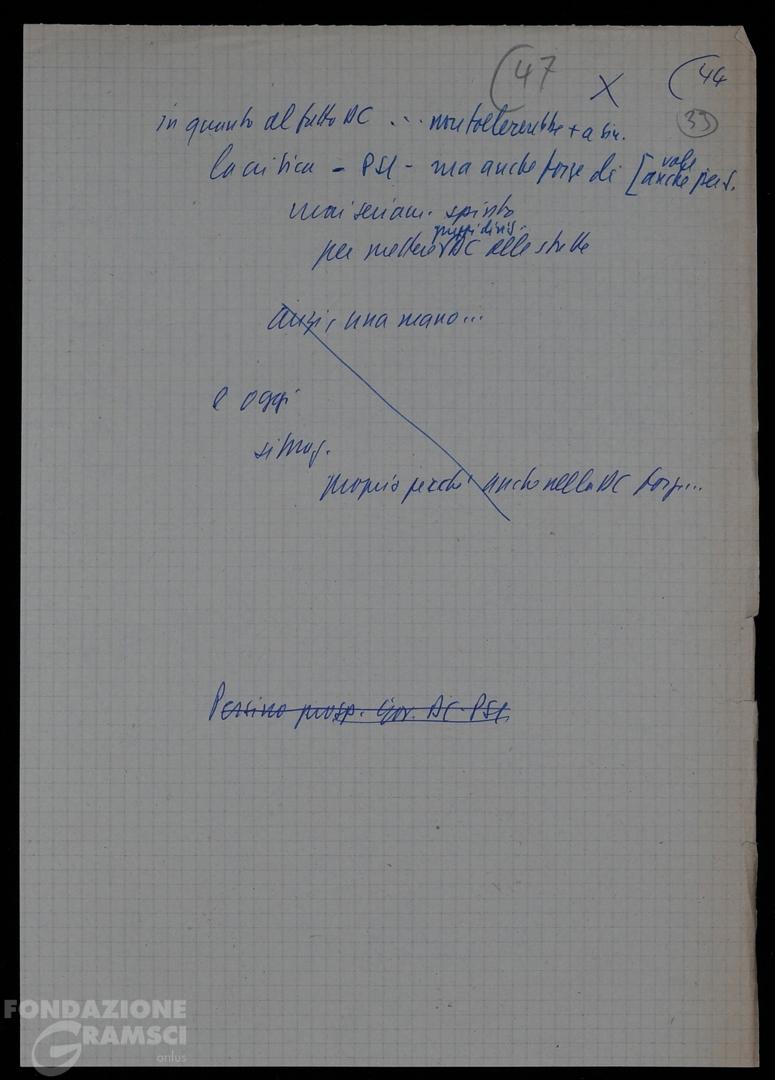 (47 X (44
33
in quanto al fatto DC ... non tollererebbe + a sin.
la critica - PSI - ma anche forze di [vale anche per s.
mai seriam. spinto
gruppi divis.
per mettere DC alle strette
anzi, una mano...
e oggi
si mag.
proprio perché anche nella DC forze...
Persino prosp. Gov. DC-PSI
FONDAZIONE
GRAMSCI
onlus